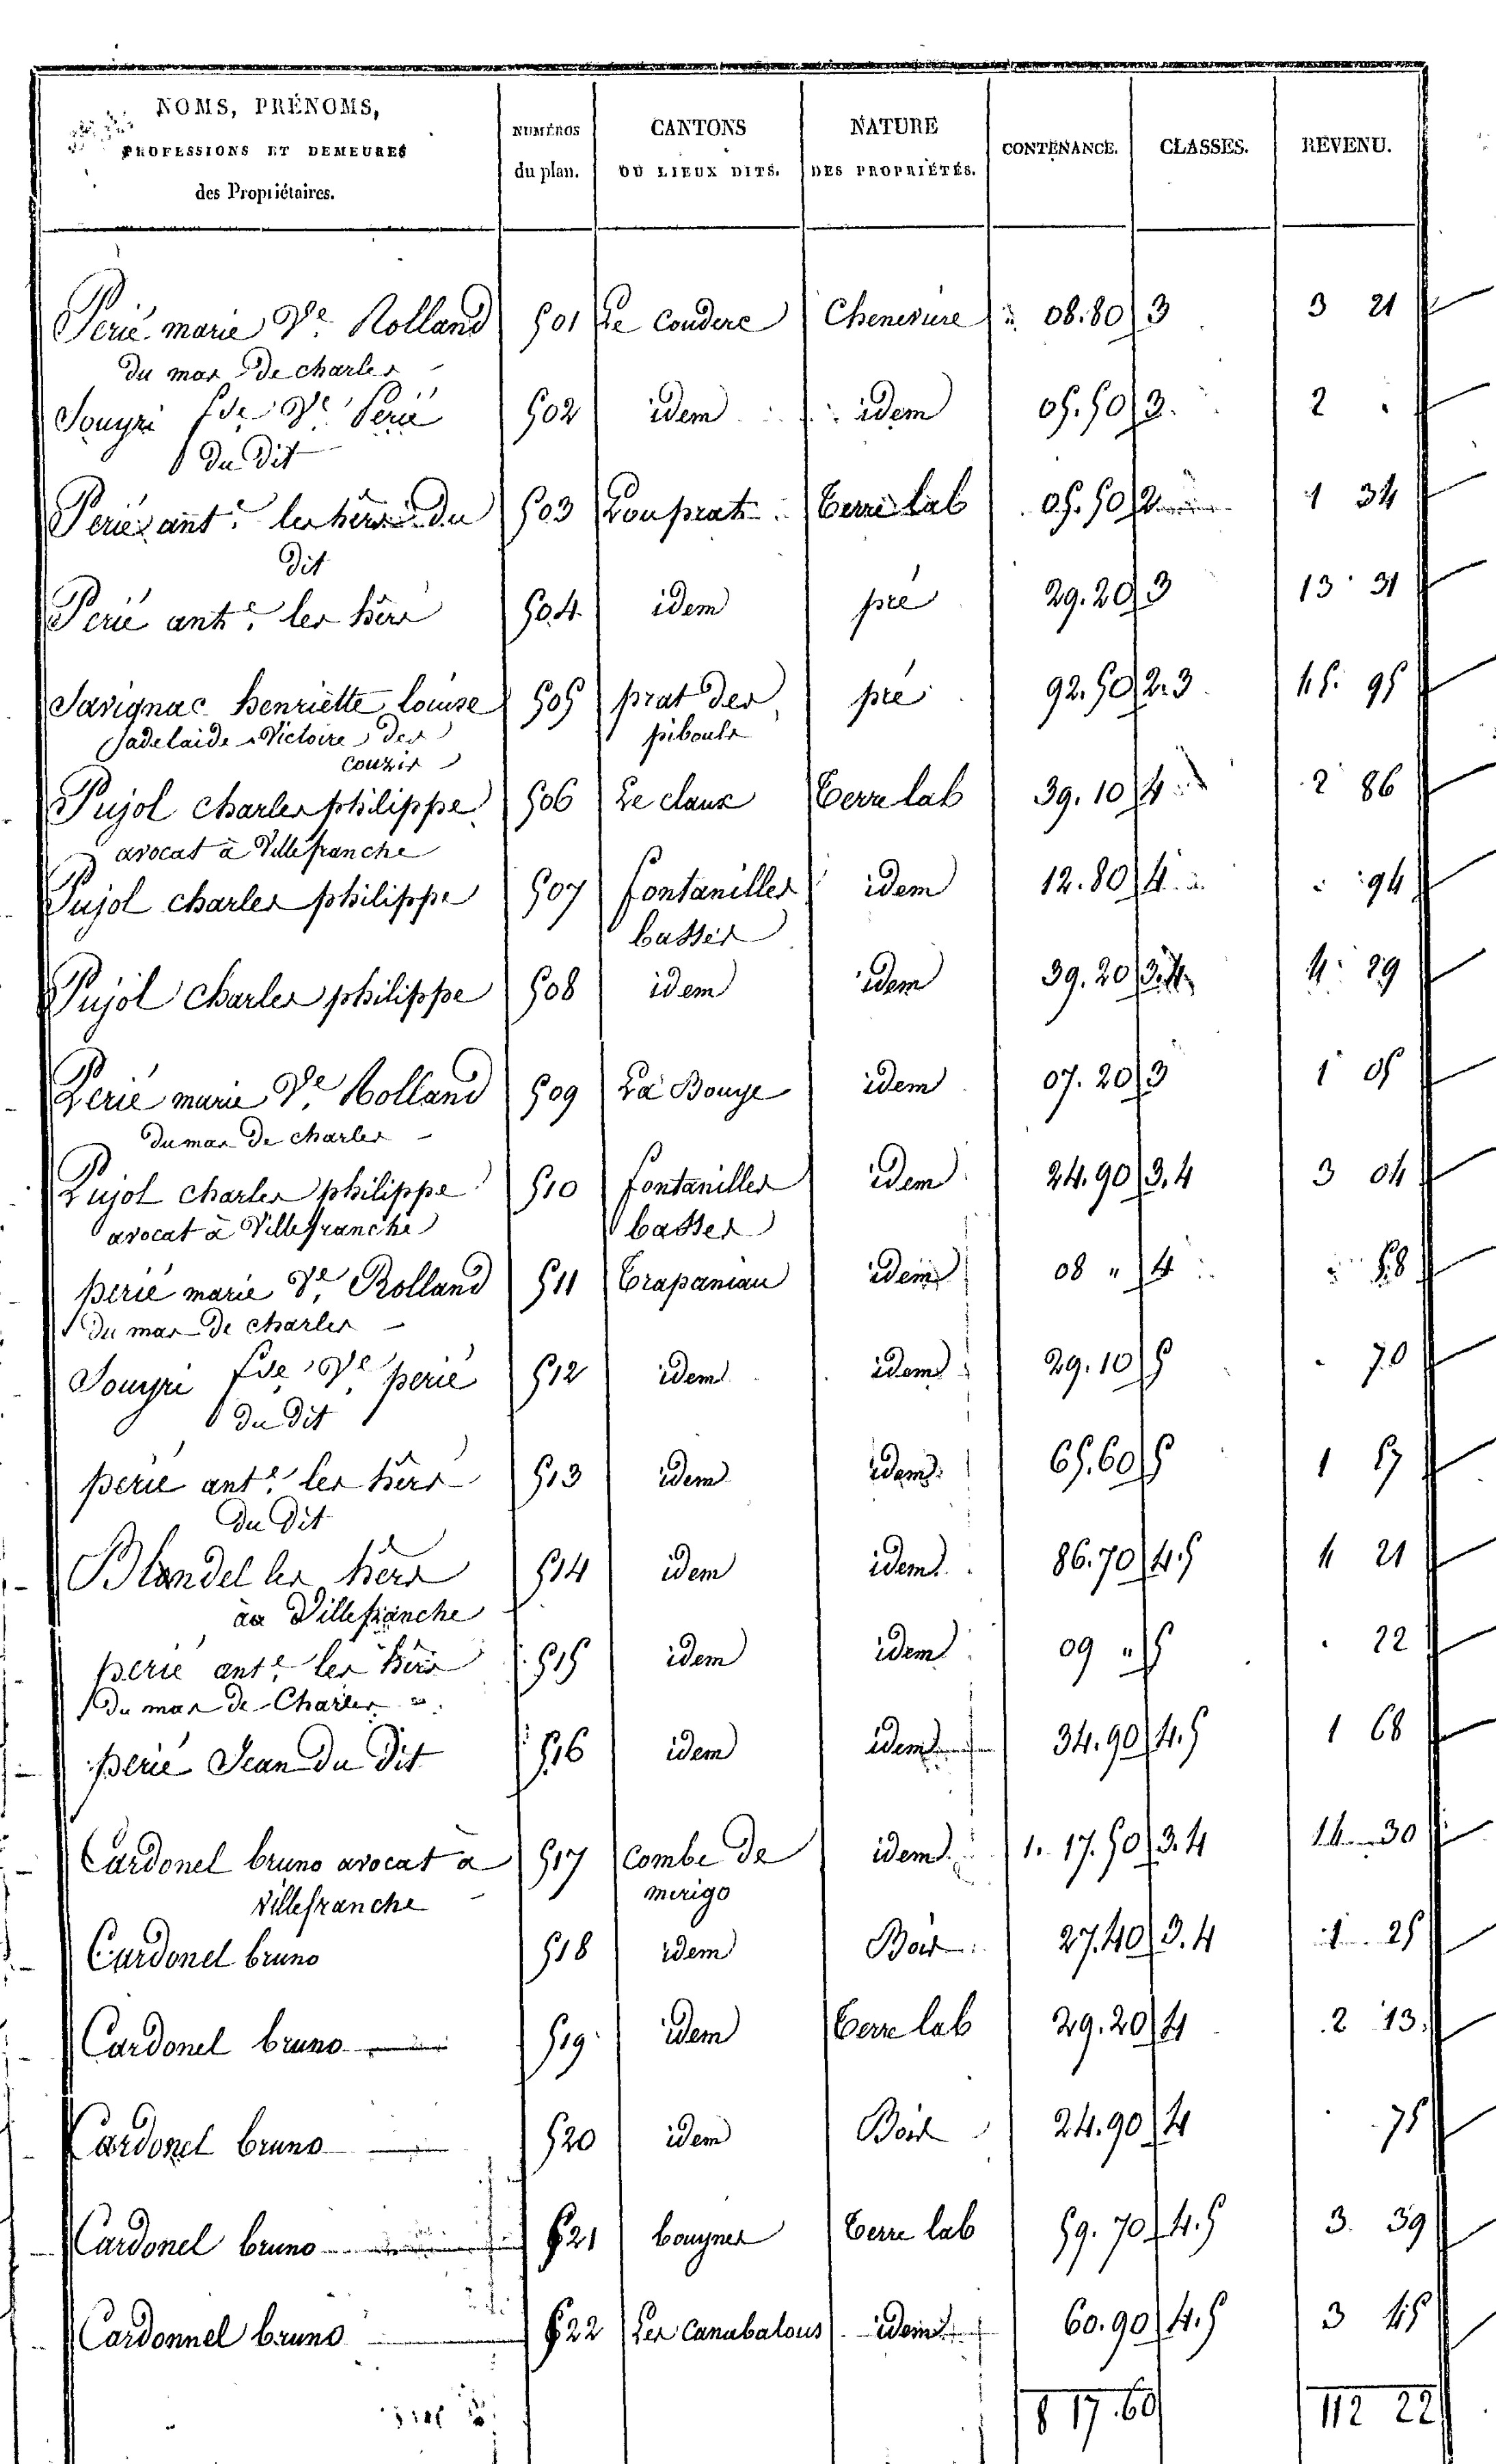 NOMS, PRÉNOMS, PROFESSIONS ET DEMEURES des Propriétaires. | NUMÉROS du plan. | CANTONS OU LIEUX DITS. | NATURE DES PROPRIÉTÉS. | CONTENANCE. | CLASSES. | REVENU.
Perié marie Ve. Rolland 501 Le Couderc Cheneviere 08.80 3 3 21
du mas de charles
Souyri fse Ve Perié 502 idem idem 05.50 3. 2
du dit
Perié ante. les hers du 503 Lou prat Terre lab 05.50 2 1 34
dit
Perié ante. les hers 504 idem pré 29.20 3 13 31
Savignac henriette louise 505 prat des pré 92.50 2.3 45. 95
adelaide Victoire des pibouls
couzis
Pujol charles philippe 506 Le claux Terre lab 39.10 4 2 86
avocat à Villefranche
Pujol charles philippe 507 fontanilles idem 12.80 4 94
basses
Pujol charles philippe 508 idem idem 39.20 3.4 4 29
Perié marie Ve. Rolland 509 La Bouye idem 07.20 3 1 05
du mas de charles
Pujol charles philippe 510 fontanilles idem 24.90 3.4 3 04
avocat à Villefranche basses
perié marie Ve. Rolland 511 Trapaniau idem 08 " 4 58
du mas de charles
Souyri fse Ve. perié 512 idem idem 29.10 5 70
du dit
perié ante. les hers 513 idem idem 65.60 5 1 57
du dit
Blondel les hers 514 idem idem 86.70 4.5 4 21
à Villefranche
perié ante. les hers 515 idem idem 09 " 5 22
du mas de Charles
perié Jean du dit 516 idem idem 34.90 4.5 1 68
Cardonel bruno avocat à 517 combe de idem 1. 17.50 3.4 14 30
villefranche merigo
Cardonel bruno 518 idem Bois 27.40 3.4 1 25
Cardonel bruno 519 idem Terre lab 29.20 4 2 13
Cardonel bruno 520 idem Bois 24.90 4 75
Cardonel bruno 521 bouynes Terre lab 59.70 4.5 3. 39
Cardonnel bruno 522 Les Canabalous idem 60.90 4.5 3 45
8 17.60 112 22